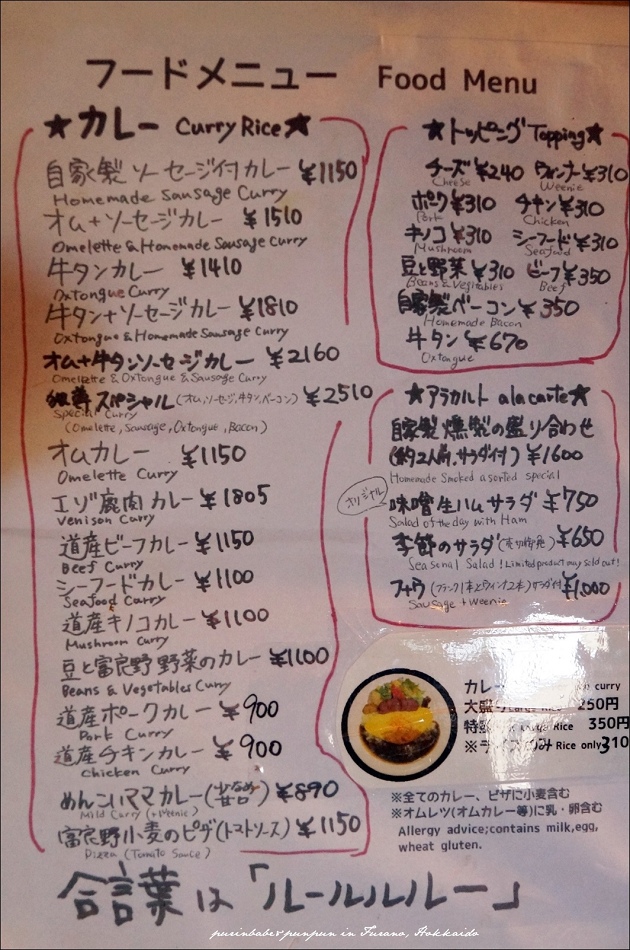 フードメニュー Food Menu
★カレー Curry Rice★
自家製ソーセージ付カレー ¥1150
Homemade Sausage Curry
オム+ソーセージカレー ¥1510
Omelette & Homemade Sausage Curry
牛タンカレー ¥1410
Oxtongue Curry
牛タン+ソーセージカレー ¥1810
Oxtongue & Homemade Sausage Curry
オム+牛タンソーセージカレー ¥2160
Omelette & Oxtongue & Sausage Curry
スペシャル(オム,ソーセージ,牛タン,ベーコン) ¥2510
Special Curry
(Omelette, Sausage, Oxtongue, Bacon)
オムカレー ¥1150
Omelette Curry
エゾ鹿肉カレー ¥1805
Venison Curry
道産ビーフカレー ¥1150
Beef Curry
シーフードカレー ¥1100
Seafood Curry
道産キノコカレー ¥1100
Mushroom Curry
豆と富良野野菜のカレー ¥1100
Beans & Vegetables Curry
道産ポークカレー ¥900
Pork Curry
道産チキンカレー ¥900
Chicken Curry
めんこいママカレー(少なめ甘口) ¥890
Mild Curry (+Weenie)
富良野小麦のピザ(トマトソース) ¥1150
Pizza (Tomato Sauce)
★トッピング Topping★
チーズ ¥240 ウィンナー ¥310
Cheese Weenie
ポーク ¥310 チキン ¥310
Pork Chicken
キノコ ¥310 シーフード ¥310
Mushroom Seafood
豆と野菜 ¥310 ビーフ ¥350
Beans & Vegetables Beef
自家製ベーコン ¥350
Homemade Bacon
牛タン ¥670
Oxtongue
★アラカルト a la carte★
自家製燻製の盛り合わせ
(約2人前.サラダ付) ¥1600
Homemade Smoked asorted special
オリジナル 味噌生ハムサラダ ¥750
Salad of the day with Ham
季節のサラダ(売切御免) ¥650
Seasonal Salad !Limited product may sold out!
フチウ(フランク1本とウィンナ2本)サラダ付 ¥1,000
Sausage + Weenie
カレー curry
大盛り 250円
特盛 350円
※ライスのみ Rice only 310
※全てのカレー、ピザに小麦含む
※オムレツ(オムカレー等)に乳・卵含む
Allergy advice;contains milk,egg,
wheat gluten.
合言葉は「ルールルルルー」
purinbaber punpun in Furano, Hokkaido